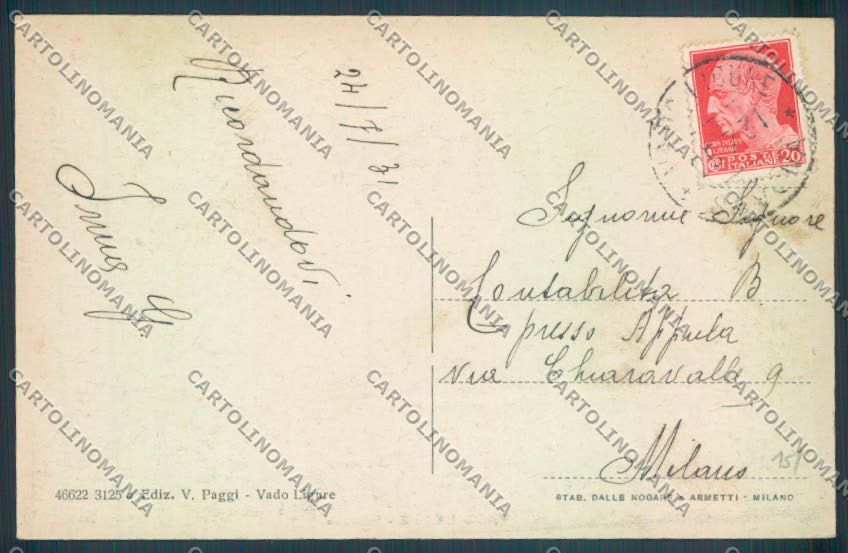 24/7/31
Ricordandovi
Irma G.
Signorine - Signore
Contabilità B
presso Appula
Via Chiaravalle 9
Milano
15/
46622 3125 Ediz. V. Paggi - Vado Ligure
STAB. DALLE NOGARE & ARMETTI - MILANO
POSTE
ITALIANE
20
LIGURE
CARTOLINOMANIA